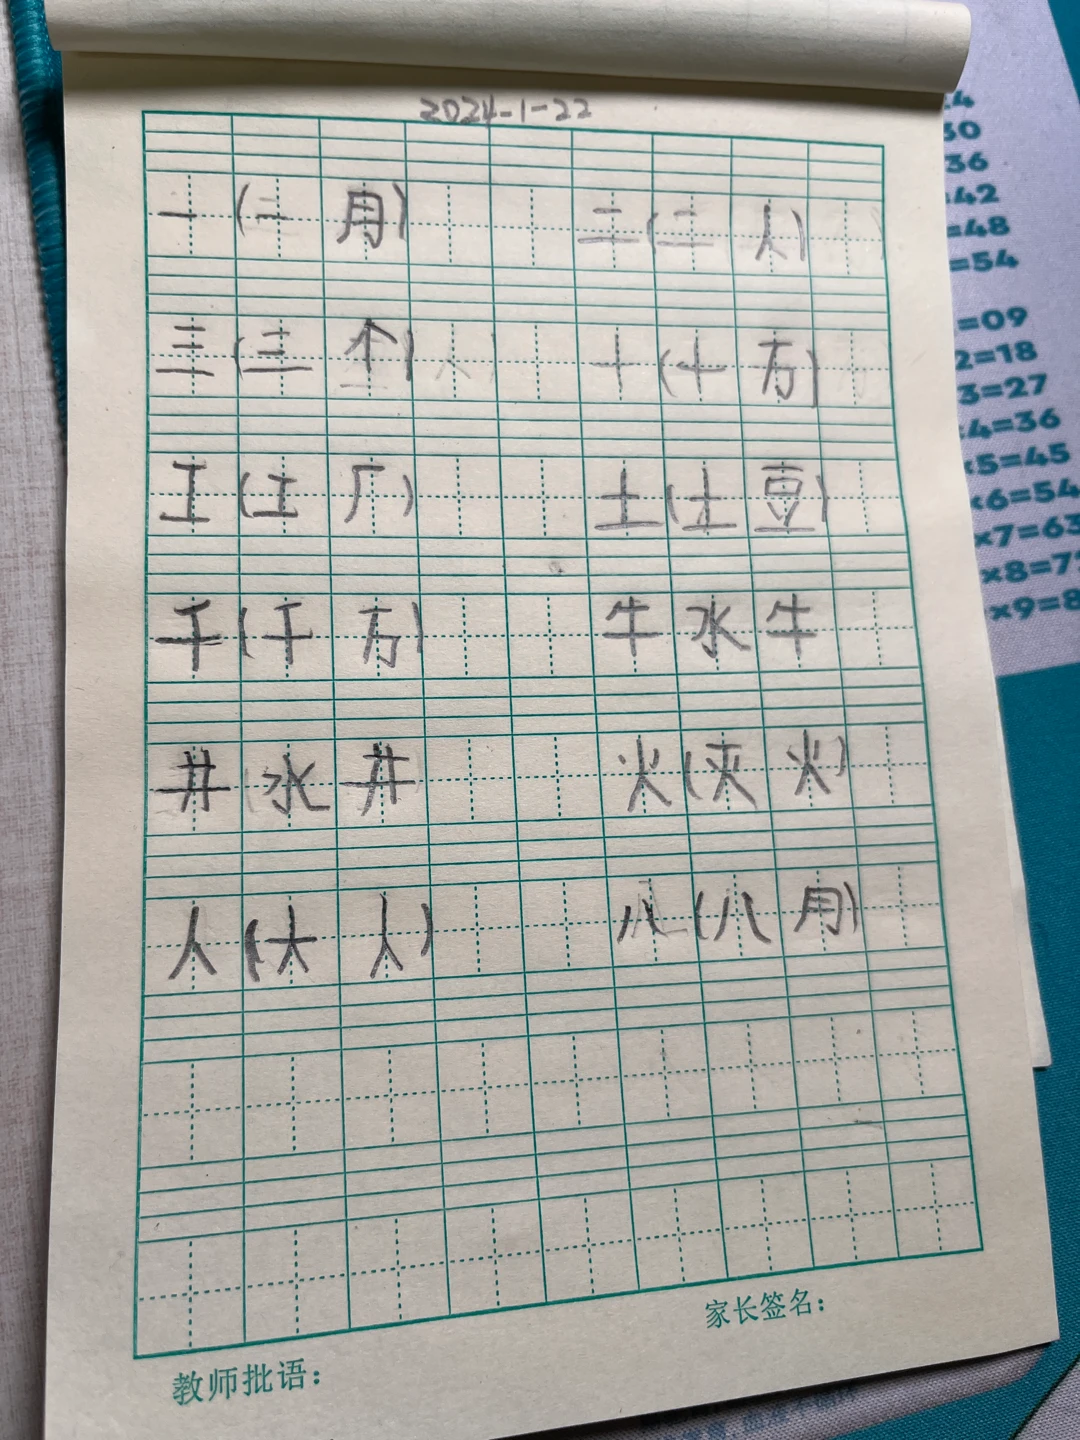 2024-1-22
一(一 月) 二(二 人)
三(三 个) 十(十 方)
工(工 厂) 土(土 豆)
千(千 方) 牛 水 牛
井 水 井 火(灭 火)
人(大 人) 八(八 月)
家长签名：
教师批语：
4
30
36
=42
=48
=54
=09
2=18
3=27
4=36
×5=45
×6=54
×7=63
×8=7
×9=8